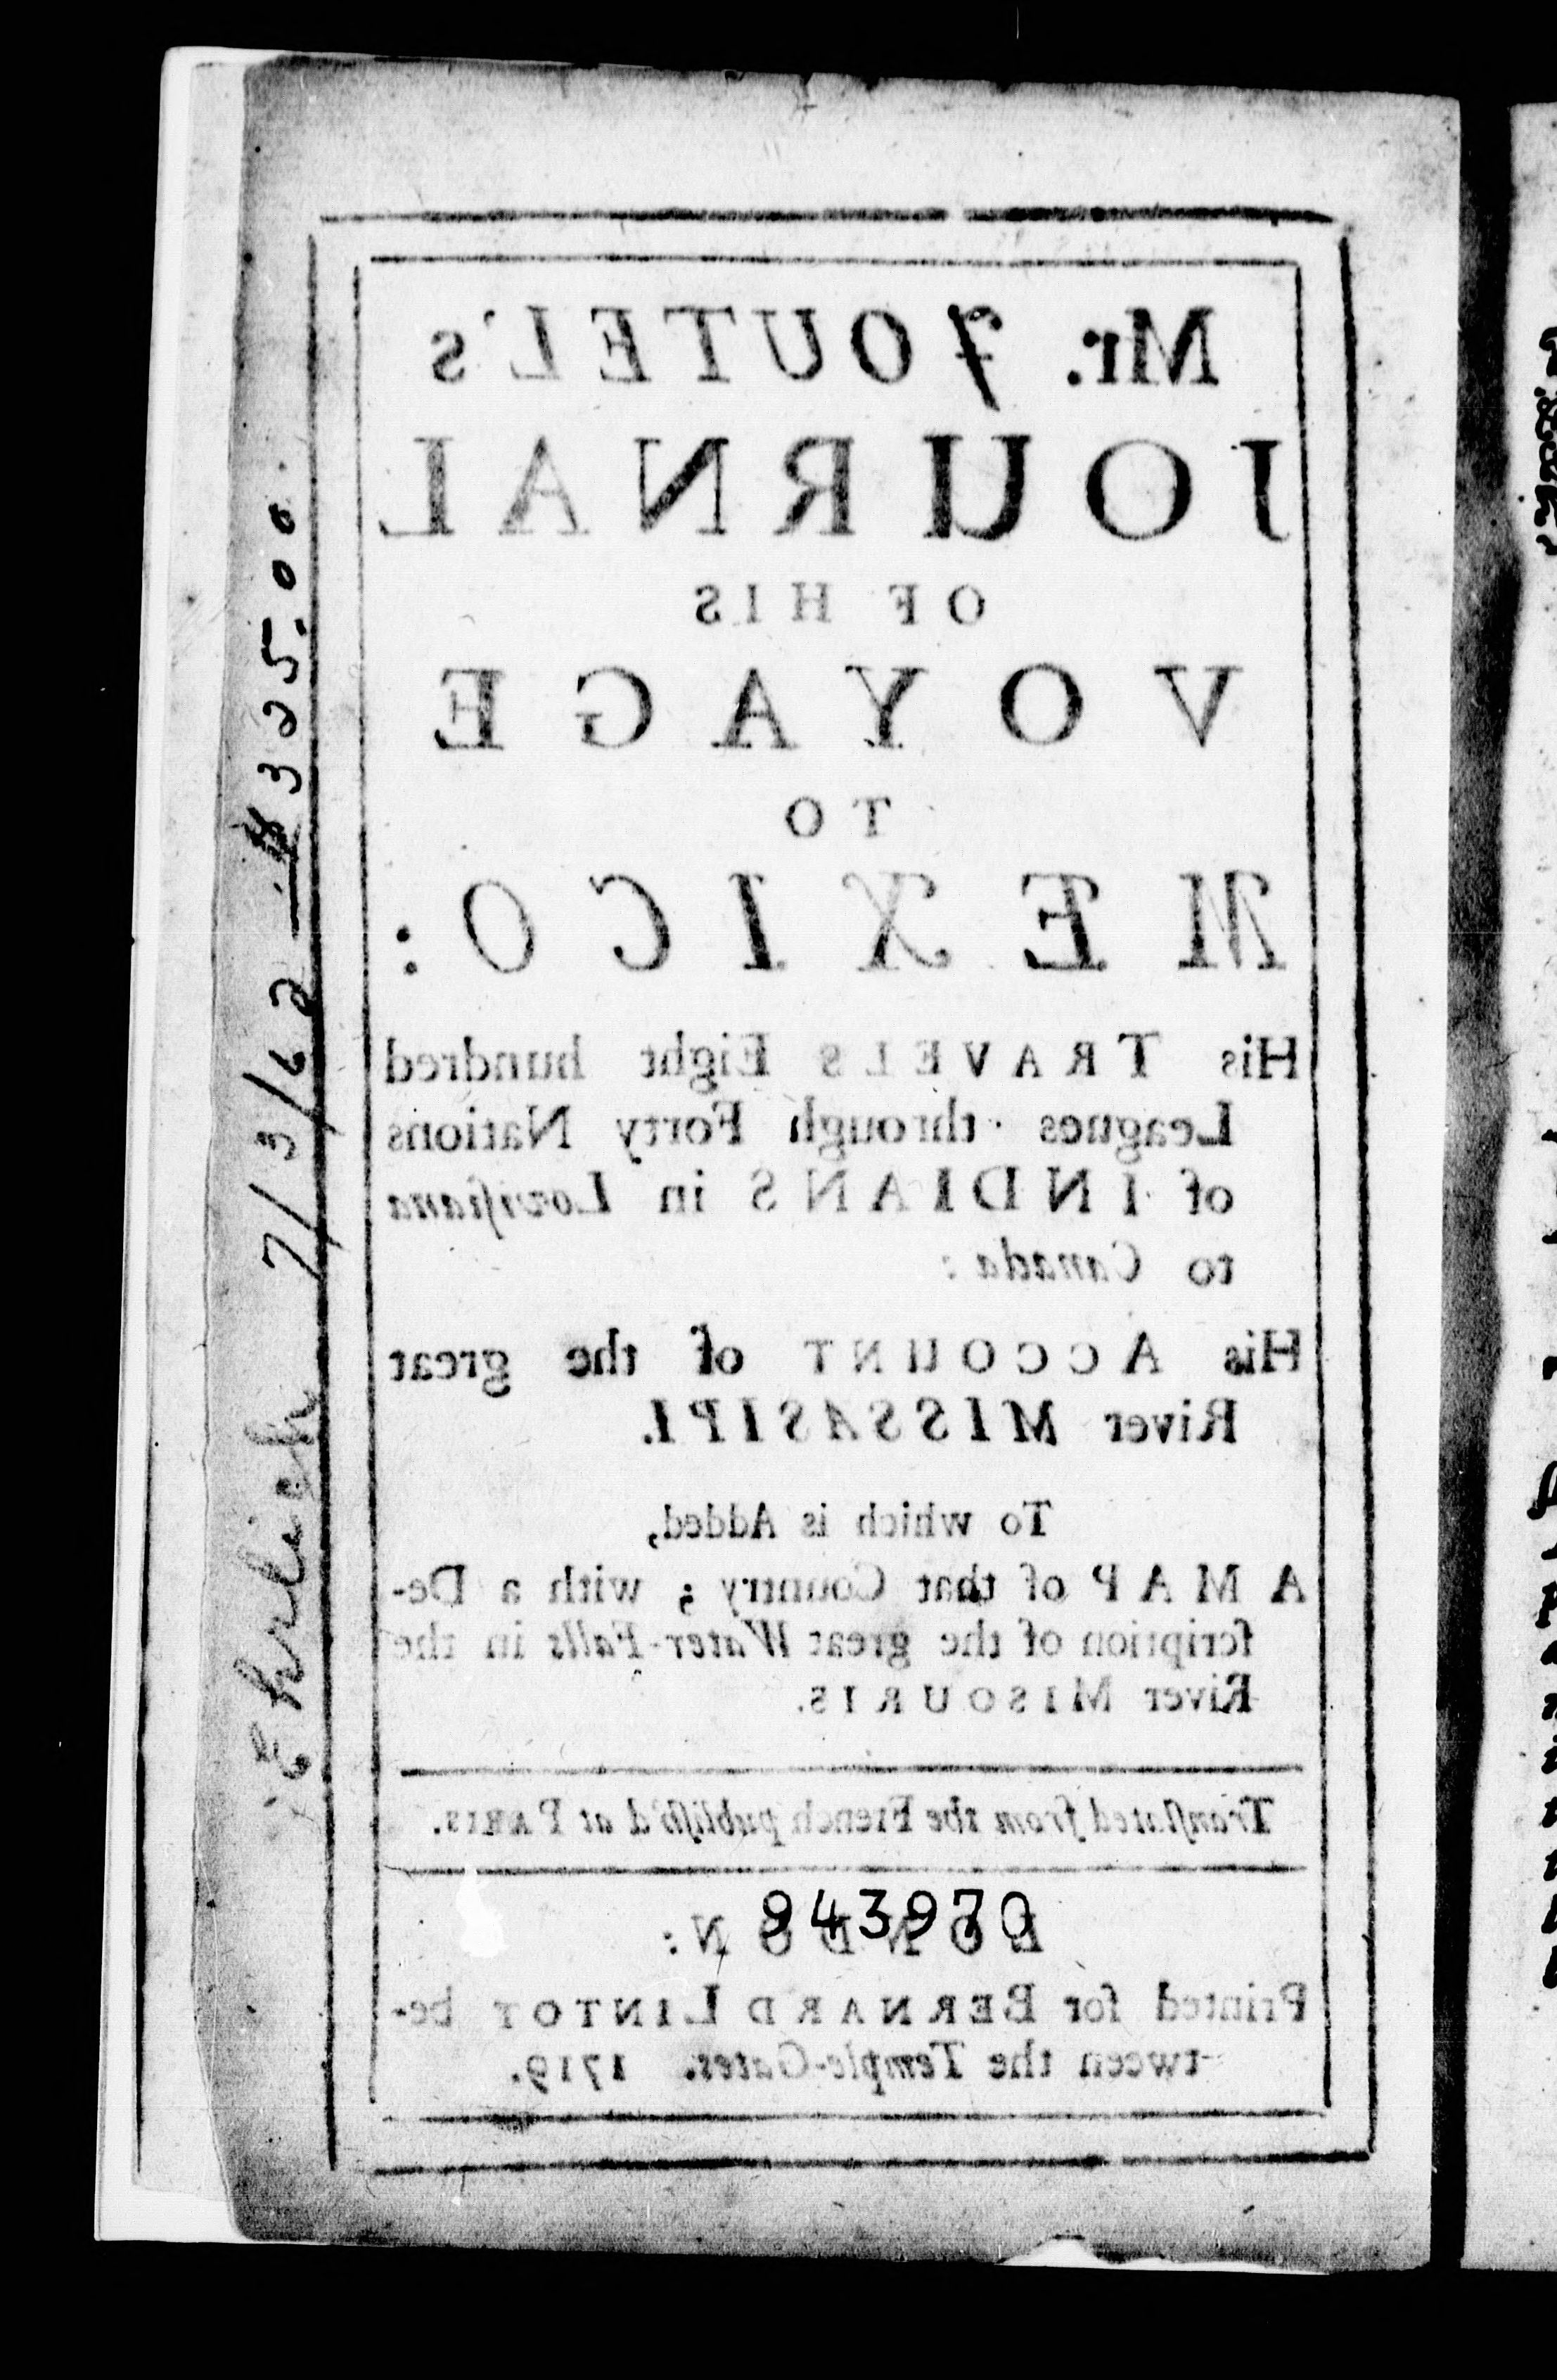 Mr. JOUTEL's
JOURNAL
OF HIS
VOYAGE
TO
MEXICO:
His TRAVELS Eight hundred
Leagues through Forty Nations
of INDIANS in Loviſiana
to Canada:
His ACCOUNT of the great
River MISSASIPI.
To which is Added,
A MAP of that Country; with a De-
ſcription of the great Water-Falls in the
River MISOURIS.
Tranſlated from the French publiſh'd at PARIS.
LONDON:
943970
Printed for BERNARD LINTOT be-
tween the Temple-Gates. 1719.
Ehrlich 7/3/62 - $325.00